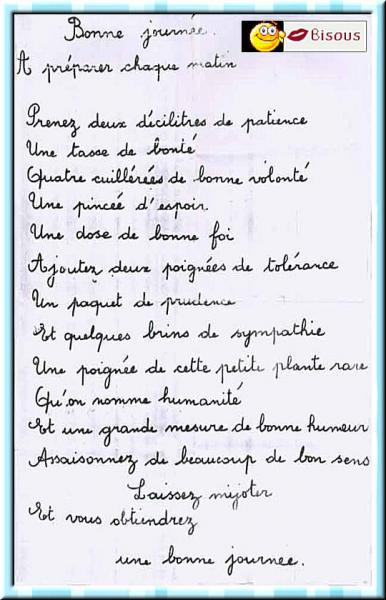 Bonne journée.
Bisous
A préparer chaque matin
Prenez deux décilitres de patience
Une tasse de bonté
Quatre cuillérées de bonne volonté
Une pinceé d'espoir.
Une dose de bonne foi
Ajoutez deux poignées de tolérance
Un paquet de prudence
Et quelques brins de sympathie
Une poignée de cette petite plante rare
Qu'on nomme humanité
Et une grande mesure de bonne humeur
Assaisonnez de beaucoup de bon sens
Laissez mijoter
Et vous obtiendrez
une bonne journée.